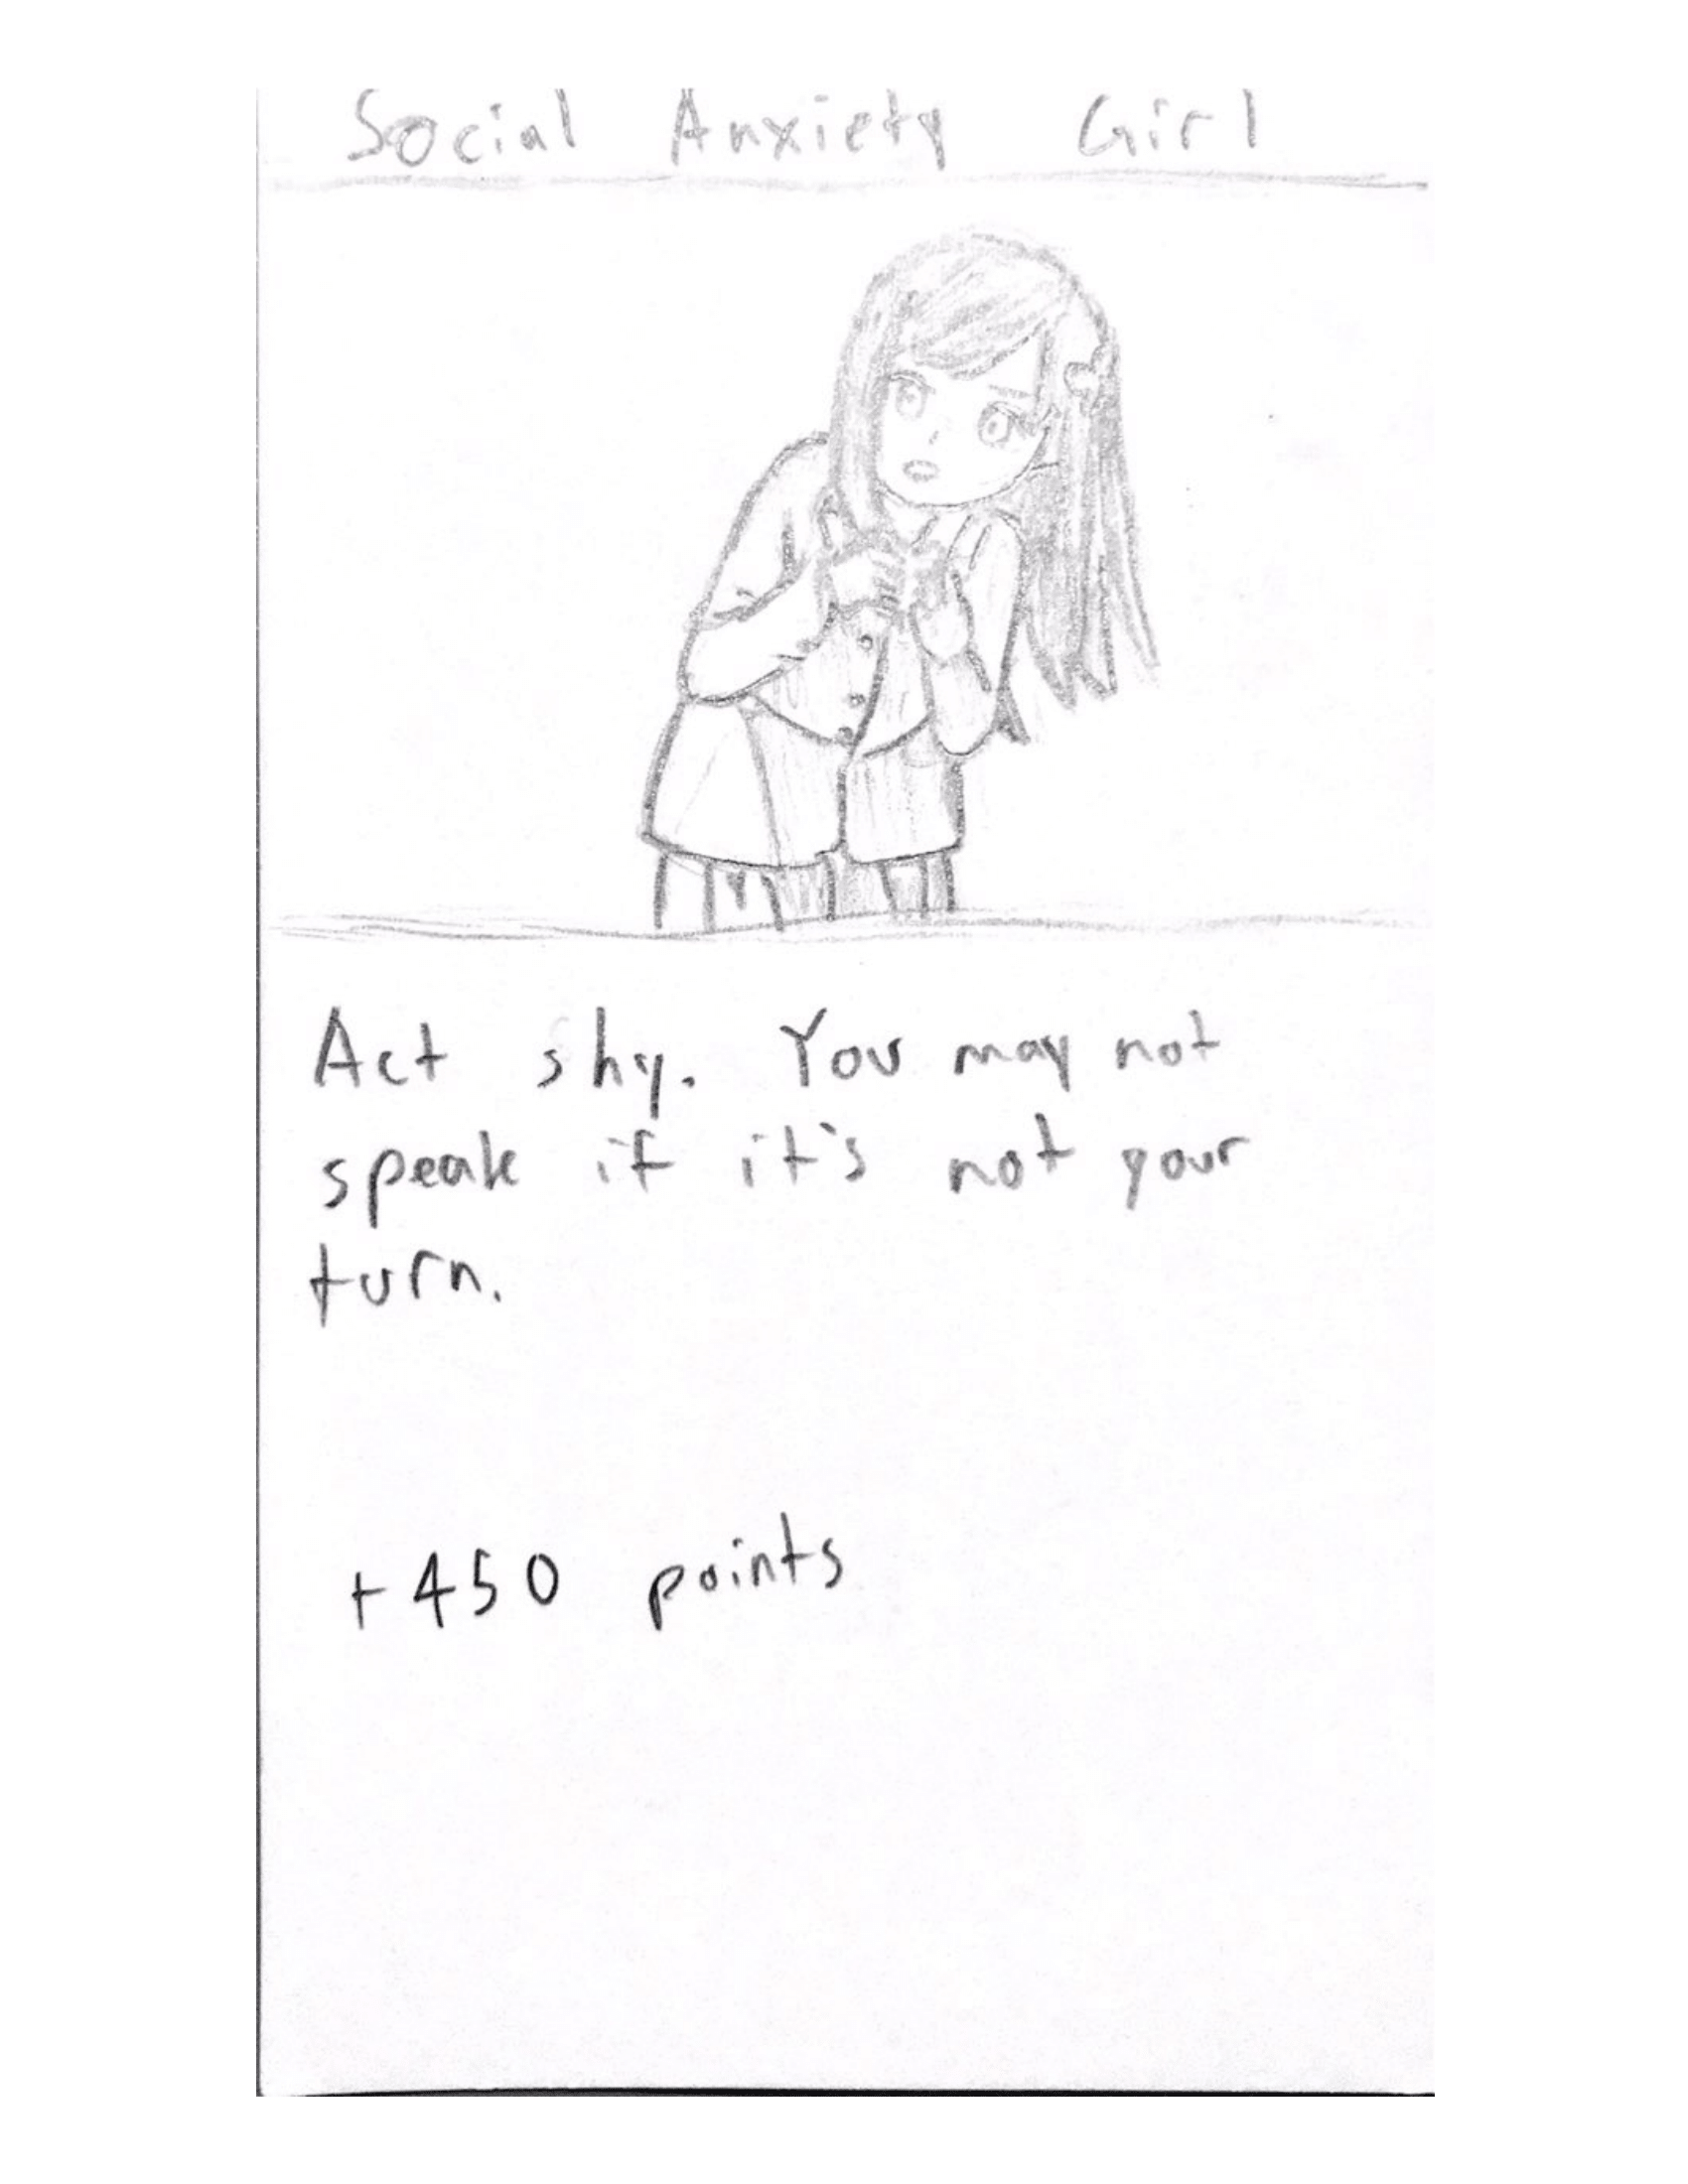 Social Anxiety Girl
Act shy. You may not
speak if it's not your
turn.
+450 points